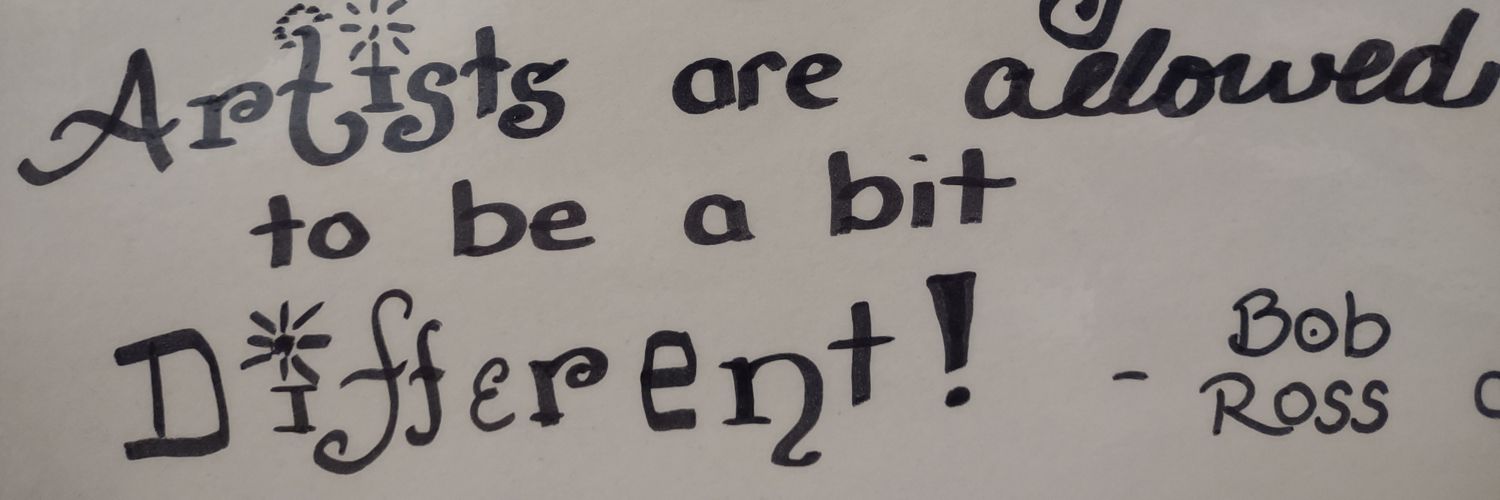 Artists are allowed
to be a bit
Different! - Bob
Ross